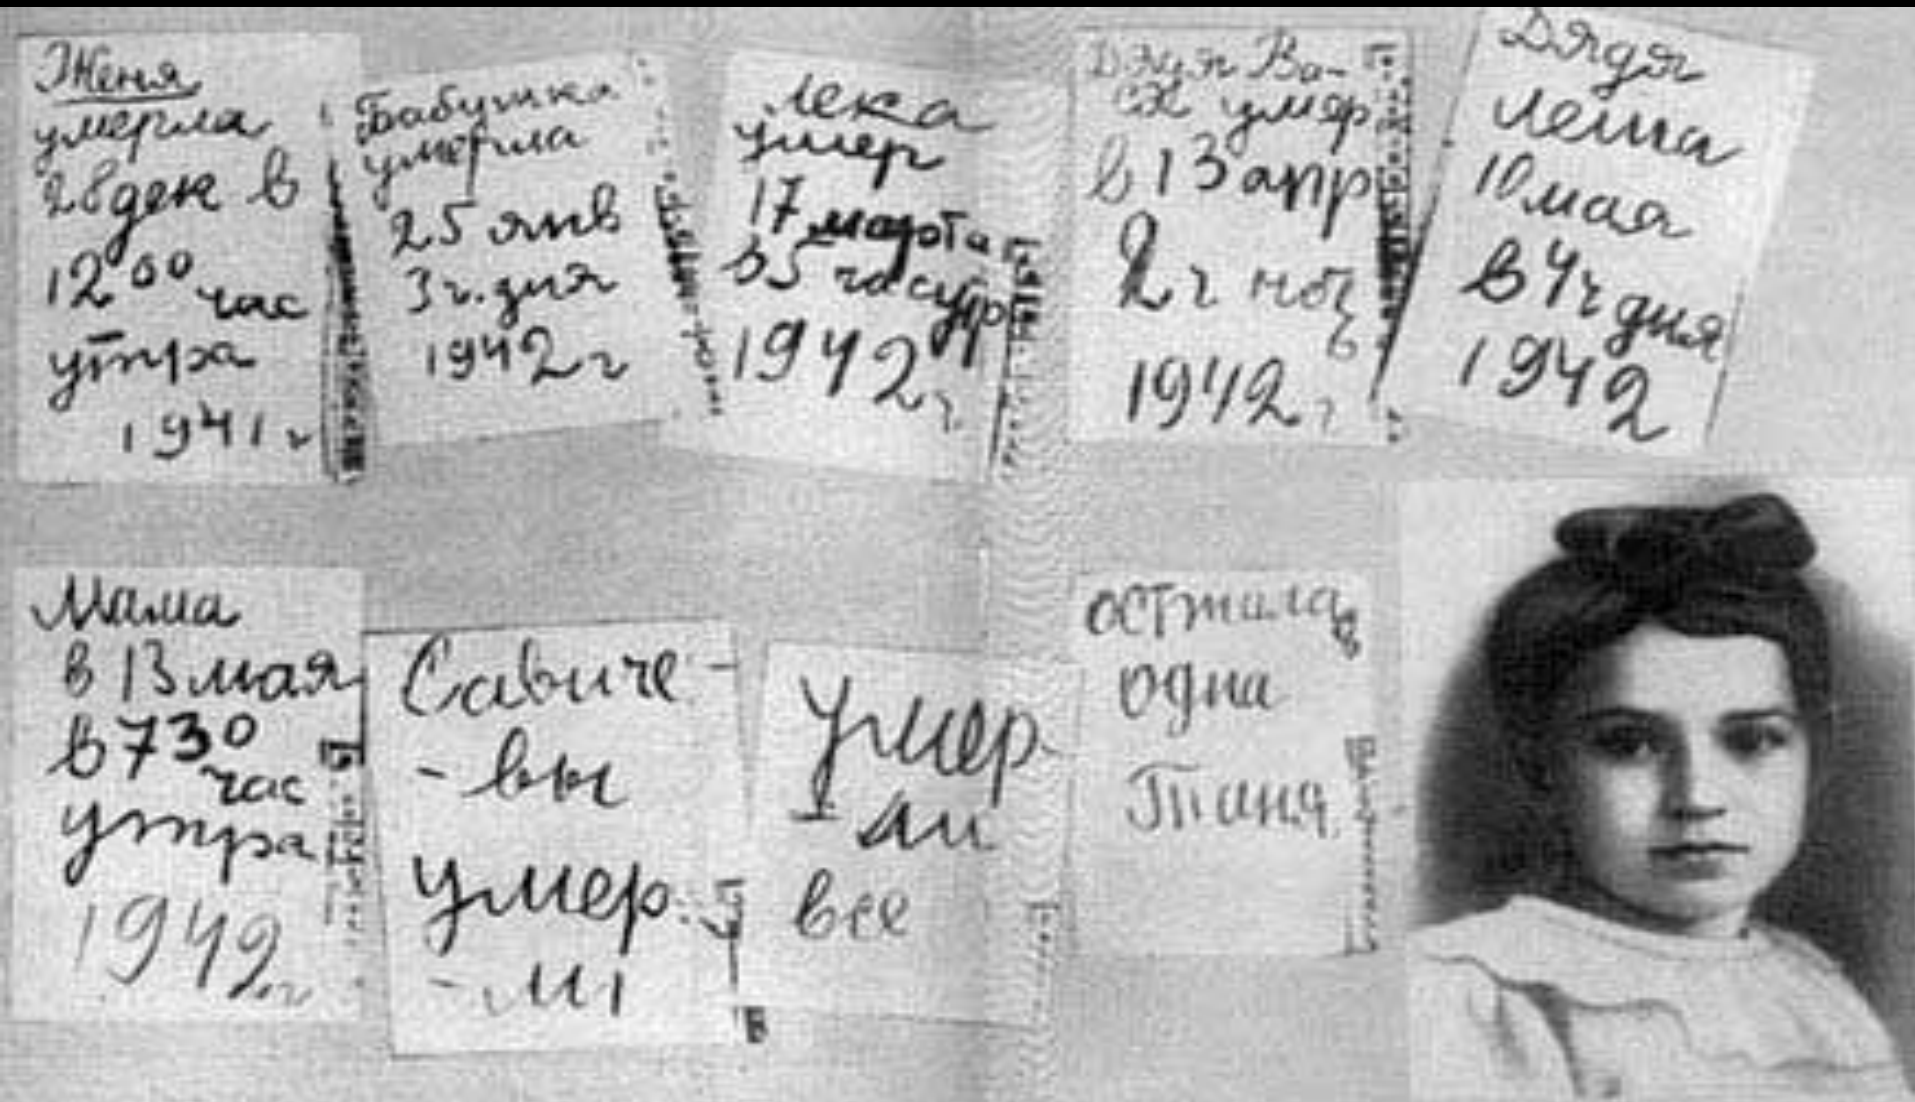 Женя
умерла
28 дек в
12 00 час
утра
1941 г
Бабушка
умерла
25 янв
3 ч. дня
1942 г
Лека
умер
17 марта
в 5 час утр
1942 г
Дядя Ва-
ся умер
в 13 апр
2 ч ноч
1942 г
Дядя
Леша
10 мая
в 4 ч дня
1942
Мама
в 13 мая
в 730
час
утра
1942 г
Савиче-
-вы
умер
-ли
Умер
ли
все
осталась
одна
Таня